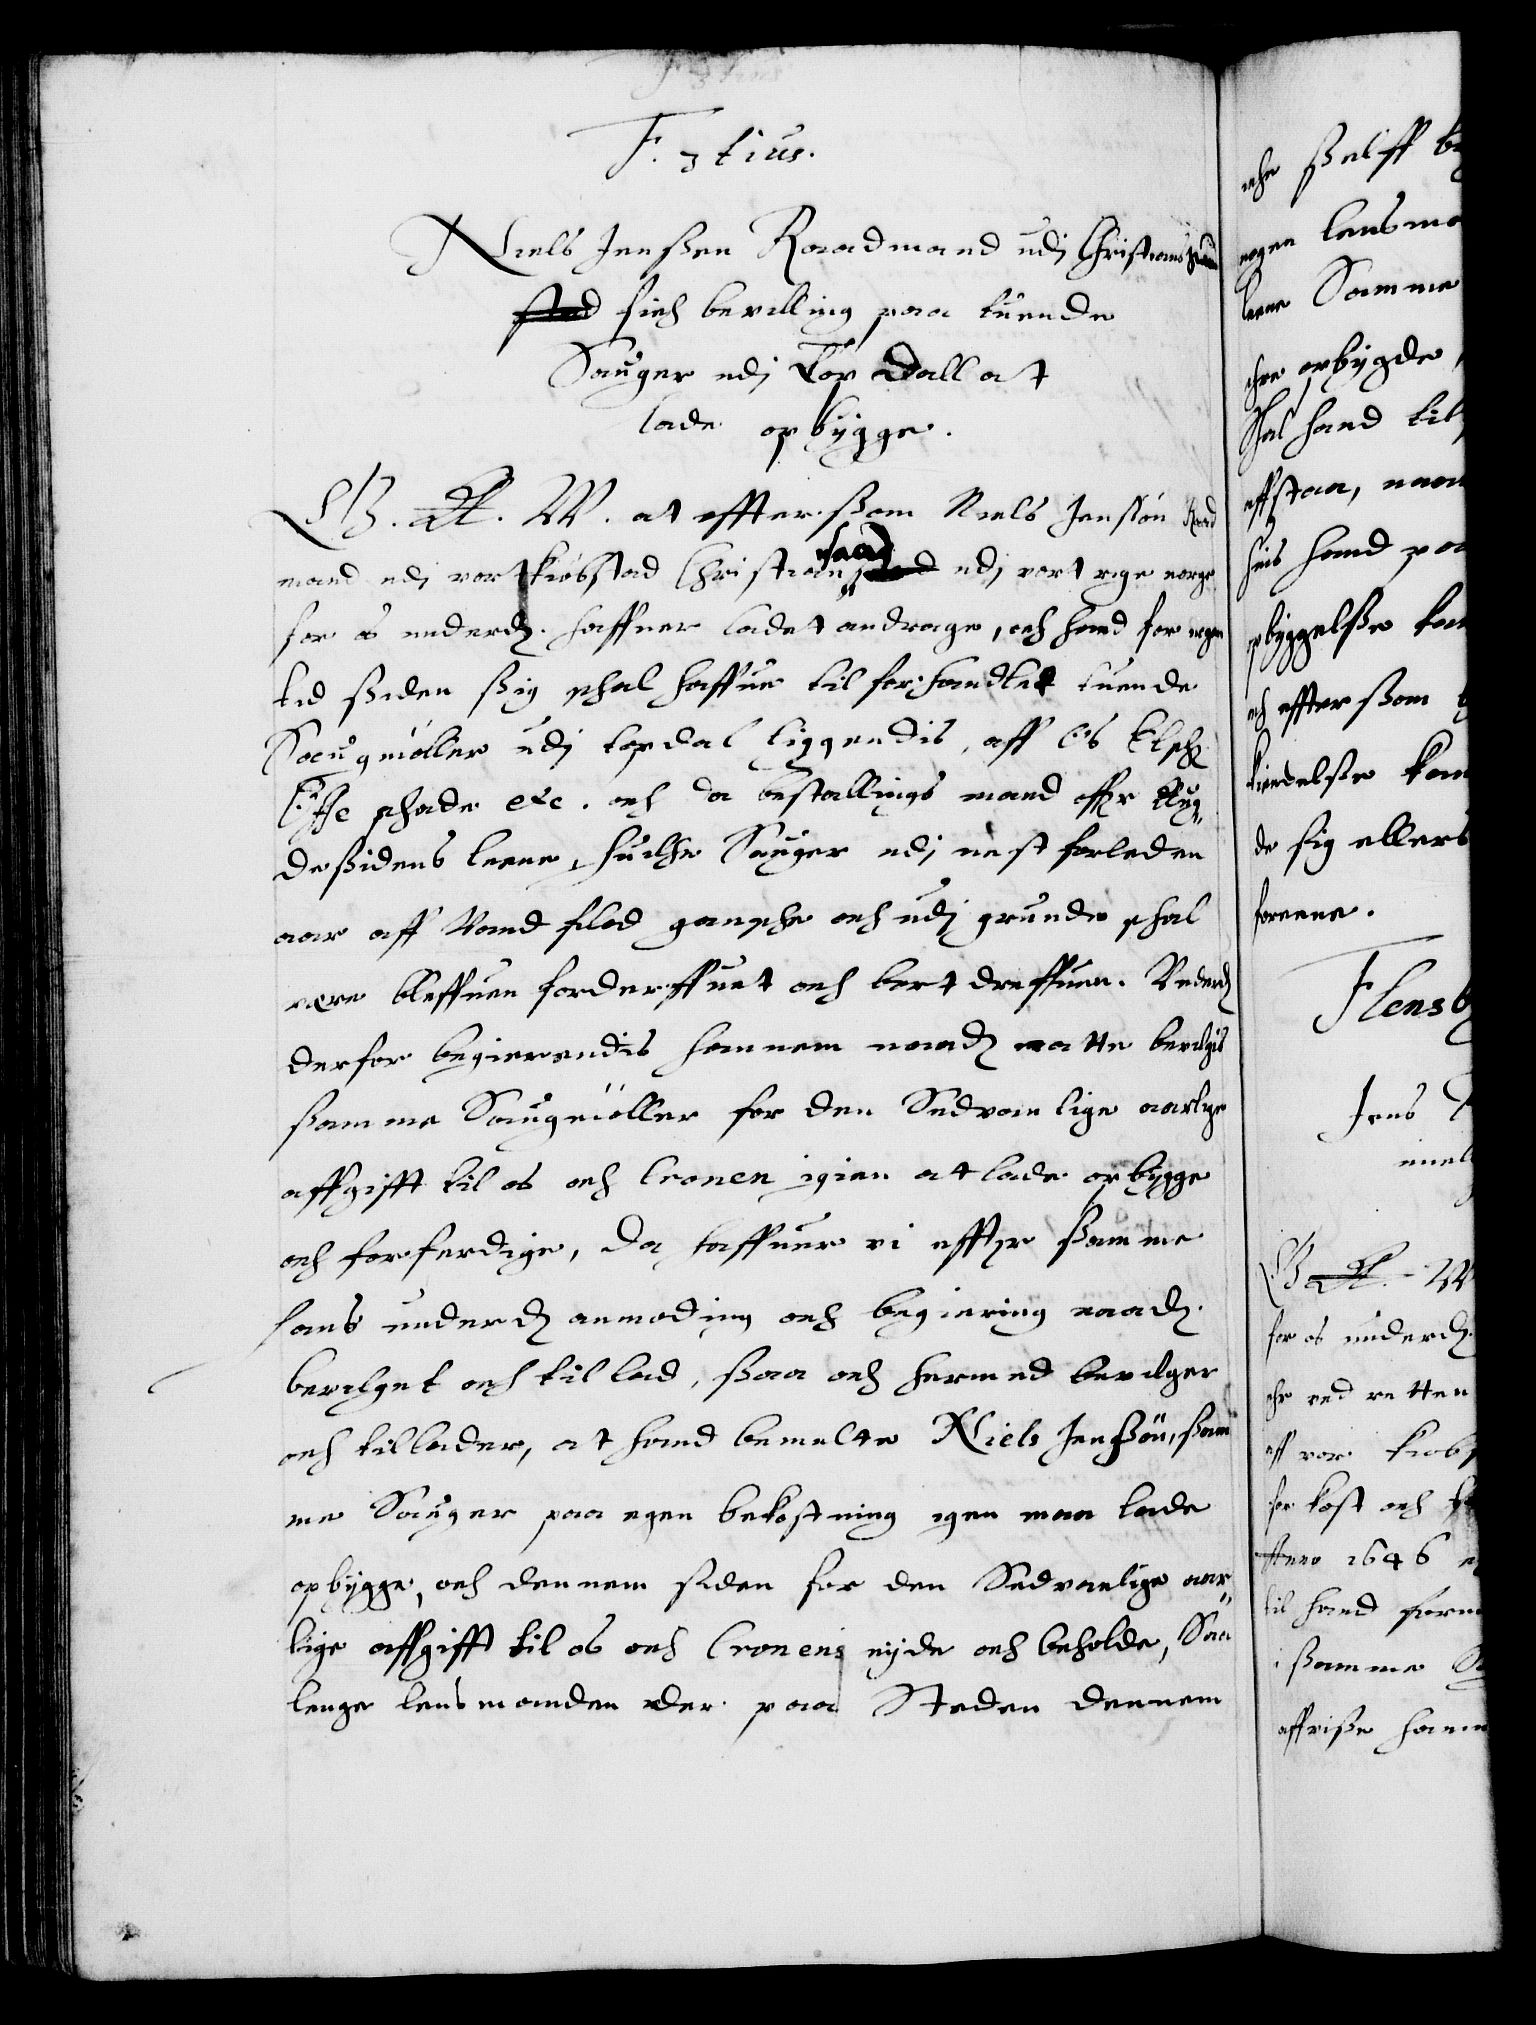 F. 3 tius.
Niels Jenßen Raadmand udj Christians
stad fich bevilling paa tuende
Sauger udj Top Dall at
lade opbygge.
C 4. G. A. W. at effter ßom Niels Jenssøn Raad
mand udj vort kiøbstad Christian sand udj vort rige norge
for os underd. haffuer ladet andrage, och hand for nogen
tid ßiden ßig schal haffue til forhandlet tuende
Saugmøller udj topdal liggendis, aff Os Elsch
Offe schade etc. och da bestallings mand offr Neg
deßidens leene, huilche Sauger udj nest forleden
aar aff Vand flod gansche och udj grunde schal
were bleffuen forderffuet och bort dreffuen. Underd
derfor begierendis hannem naad maatte bevilgis
ßamme Saugmøller for den Sedvanlige aarlige
affgifft til os och Cronen igien at lade opbygge
och forferdige, Da haffuer vi effter ßamme
hans underd anmoding och begiering naad.
bevilget och tillad, ßaa och hermed bevilger
och tillader, at hand bemelte Niels Jenßøn, ßam
me Sauger paa egen bekostning igen maa lade
opbygge, och dennem siden for den Sedvanlige aar,,
lige affgifft til os och Cronens nyde och beholde, Saa
lenge lensmanden der paa Steden dennem
ßelff
nogen lensma
Samme
opbygde,
Schal hand til
effstaa, naar
his hand paa
opbyggelße
och effter ßom
de sig ellers
foreene.
Flensb
Jens
G A. W
for os underd.
ved retten
aff vor kiøbs
for kost och
Anno 1646
til hand
i ßamme
affviße hann